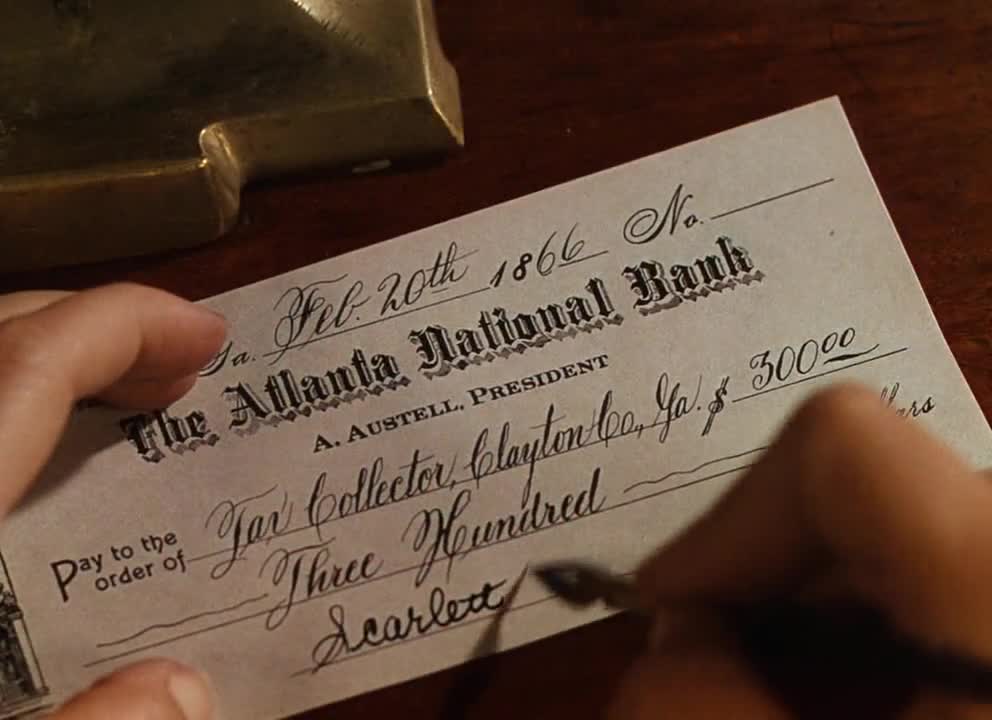 Ga. Feb. 20th 1866 No.
The Atlanta National Bank
A. Austell, President
Pay to the order of Tax Collector, Clayton Co., Ga. $ 300 00
Three Hundred
Scarlett